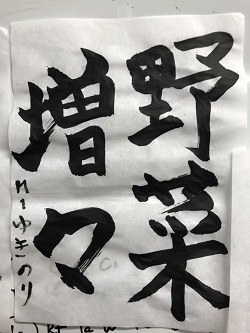 野菜
増々
M1ゆきのり